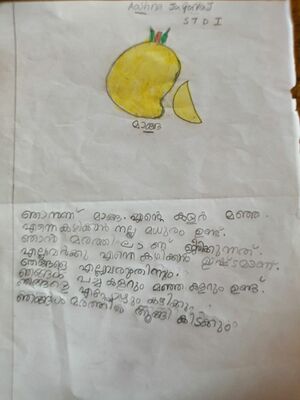 Aajhna Jayaraj
STD I
മാങ്ങ
ഞാനണ് മാങ്ങ. എൻ്റെ കളർ മഞ്ഞ.
എന്നെകഴിക്കാൻ നല്ല മധുരം ഉണ്ട്.
ഞാൻ മരത്തി ആണ് ജീക്കുന്നത്.
എല്ലവർക്കു എന്നെ കഴിക്കൻ ഇഷ്ടമാണ്.
ഞങ്ങളെ എല്ലവരുതിന്നും.
ഞങ്ങൾ പച്ച കളറും മഞ്ഞ കളറും ഉണ്ട്.
ഞങ്ങളെ എപ്പേഴും കഴിക്കും.
ഞങ്ങൾ മരത്തിൽ തൂങ്ങി കിടക്കും.